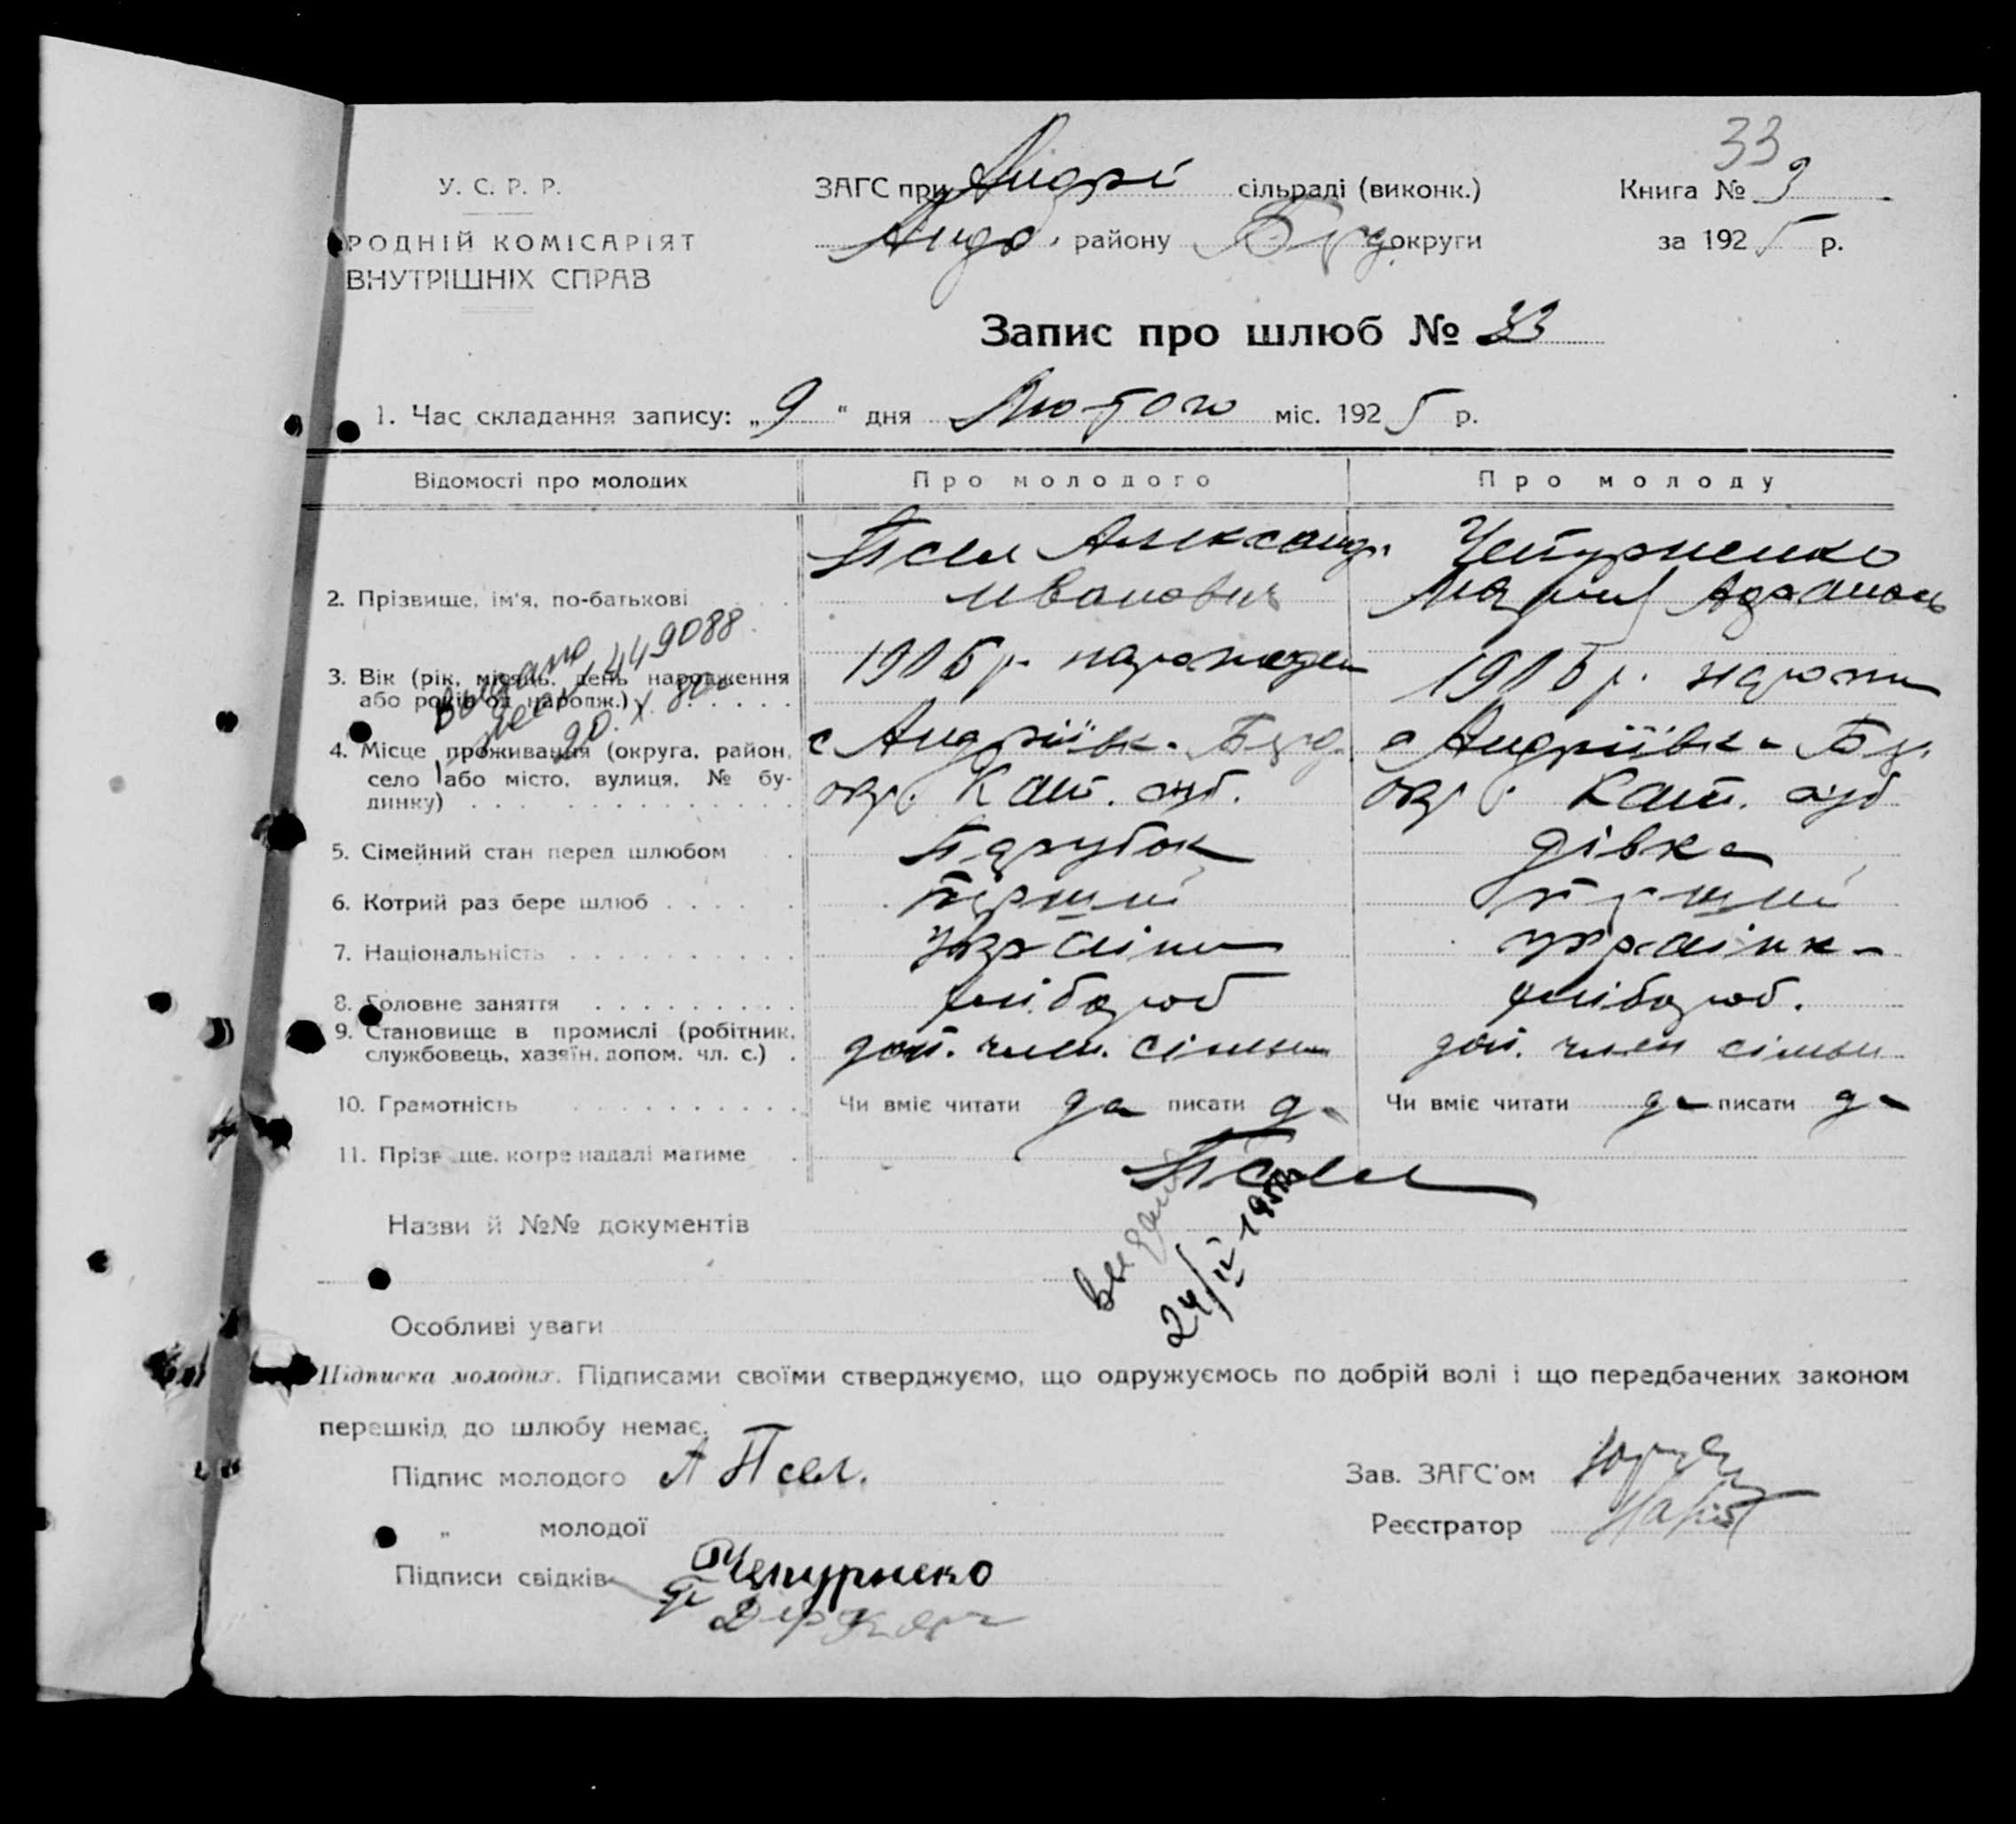 33
У. С. Р. Р.
РОДНІЙ КОМІСАРІЯТ
ВНУТРІШНІХ СПРАВ
ЗАГС при Андрі сільраді (виконк.)
Андр. району Берд округи
Книга № 9
за 1925 р.
Запис про шлюб № 33
1. Час складання запису: „9“ дня Лютого міс. 1925 р.
Відомості про молодих Про молодого Про молоду
2. Прізвище, ім'я, по-батькові
Псел Александр Чепурненко
Иванович Мария
3. Вік (рік, місяць, день народження
або років од народж.)
190 р. 190 р.
Выдано
449088
20. X. 80
4. Місце проживання (округа, район,
село або місто, вулиця, № бу-
динку)
с Андріївка Берд. с Андріївка Бер.
окр. Кат. губ. окр. Кат. губ
5. Сімейний стан перед шлюбом Парубок дівка
6. Котрий раз бере шлюб перший перший
7. Національність українец українка
8. Головне заняття хлібороб хлібороб.
9. Становище в промислі (робітник,
службовець, хазяїн, допом. чл. с.)
доп. член. сімьи доп. член сімьи
10. Грамотність Чи вміє читати да писати да Чи вміє читати да писати да
11. Прізвище, котре надалі матиме Псел
Назви й №№ документів
выдано
24/IV 195
Особливі уваги
Підписка молодих. Підписами своїми стверджуємо, що одружуємось по добрій волі і що передбачених законом
перешкід до шлюбу немає.
Підпис молодого А Псел. Зав. ЗАГС'ом
„ молодої Реєстратор
Підписи свідків Чепурнеко